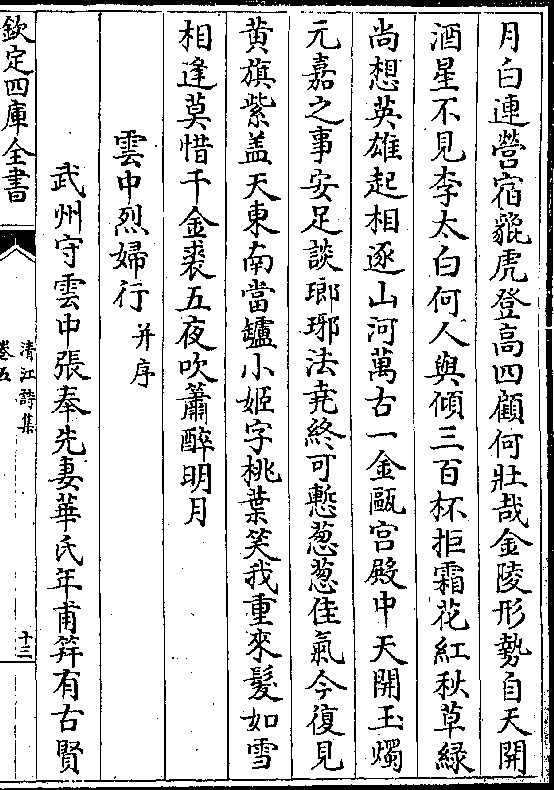 月白連營宿貔虎登高四顧何壯哉金陵形勢自天開
酒星不見李太白何人與傾三百杯拒霜花紅秋草綠
尚想英雄起相逐山河萬古一金甌宫殿中天開玉燭
元嘉之事安足談瑯琊法尭終可慙葱葱佳氣今復見
黄旗紫盖天東南當罏小姬字桃葉笑我重來髮如雪
相逢莫惜千金裘五夜吹簫醉明月
雲中烈婦行并序
武州守雲中張奉先妻華氏年甫笄有古賢
欽定四庫全書
清江詩集
卷五
十三